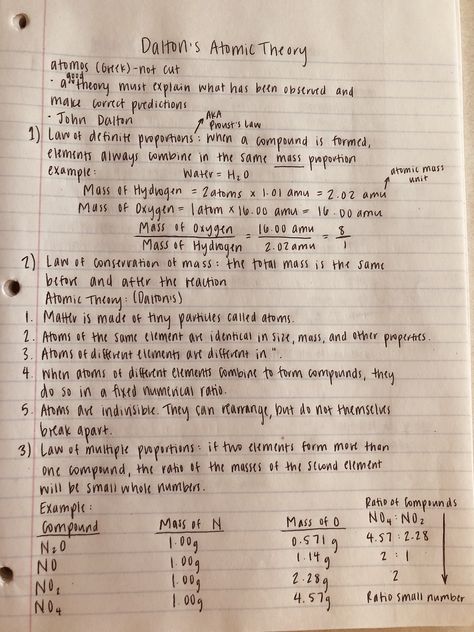 Dalton's Atomic Theory
atomos (Greek) - not cut
· a good theory must explain what has been observed and
make correct predictions
· John Dalton
AKA
Proust's Law
1) Law of definite proportions: when a compound is formed,
elements always combine in the same mass proportion
example: Water = H₂O
atomic mass
unit
Mass of Hydrogen = 2 atoms x 1.01 amu = 2.02 amu
Mass of Oxygen = 1 atom x 16.00 amu = 16.00 amu
Mass of Oxygen = 16.00 amu = 8
Mass of Hydrogen 2.02 amu 1
2) Law of conservation of mass: the total mass is the same
before and after the reaction
Atomic Theory: (Dalton's)
1. Matter is made of tiny particles called atoms.
2. Atoms of the same element are identical in size, mass, and other properties.
3. Atoms of different elements are different in ".
4. When atoms of different elements combine to form compounds, they
do so in a fixed numerical ratio.
5. Atoms are indivisible. They can rearrange, but do not themselves
break apart.
3) Law of multiple proportions: if two elements form more than
one compound, the ratio of the masses of the second element
will be small whole numbers.
Example: Ratio of Compounds
Compound Mass of N Mass of O NO₄ : NO₂
N₂O 1.00g 0.571 g 4.57 : 2.28
NO 1.00g 1.14 g 2 : 1
NO₂ 1.00g 2.28g 2
NO₄ 1.00g 4.57g Ratio small number